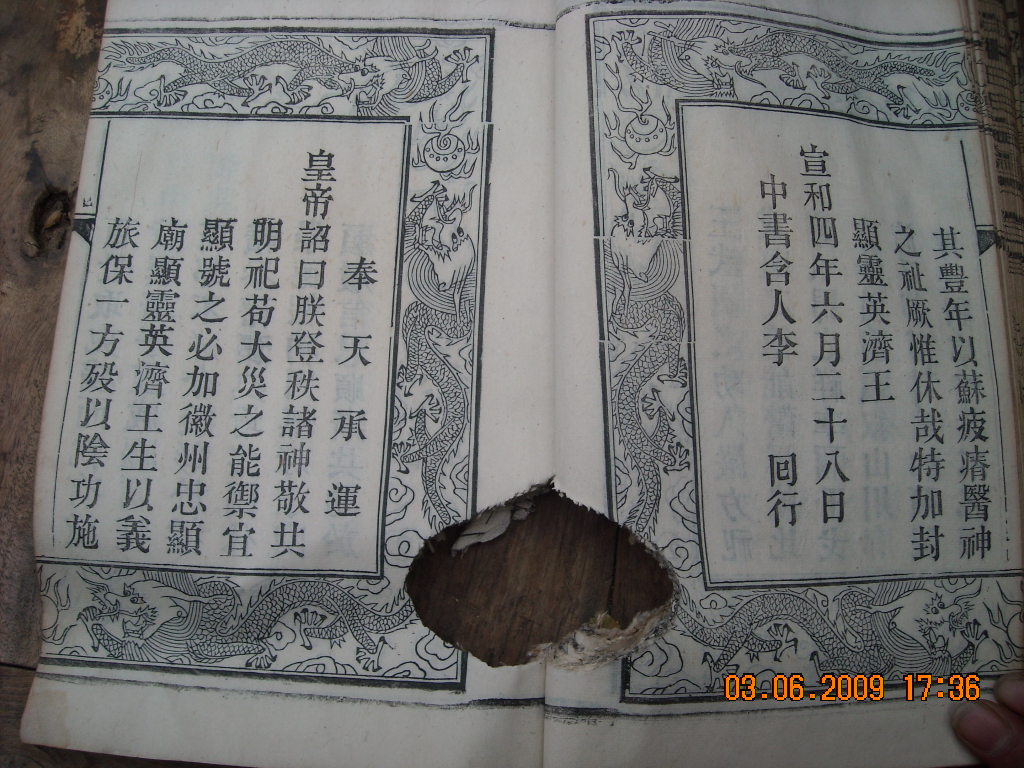 其豐年以蘇疲瘠醫神
之祉厥惟休哉特加封
顯靈英濟王
宣和四年六月二十八日
中書舍人李 囘行
奉天承運
皇帝詔曰朕登秩諸神敬共
明祀苟大災之能禦宜
顯號之必加徽州忠顯
廟顯靈英濟王生以義
旅保一方歿以陰功施
03.06.2009 17:36